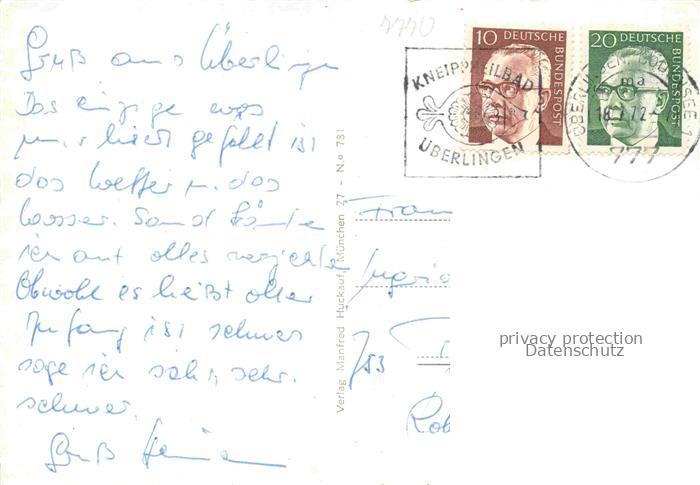 7770
Gruß aus Überlingen
Das einzige was
m. r hier gefällt ist
das Wetter u. das
Wasser. Sonst könnte
ich auf alles verzichten
Obwohl es heißt aller
Anfang ist schwer
sage ich sehr, sehr.
schwer.
Gruß
Verlag Manfred Huckauf, München 27 - N.o 781
10 DEUTSCHE BUNDESPOST
20 DEUTSCHE BUNDESPOST
KNEIPPHEILBAD
ÜBERLINGEN
ÜBERLINGEN, BODENSEE
ma
18.7.72
777
Frau
Ingrid
753
Rob
privacy protection
Datenschutz